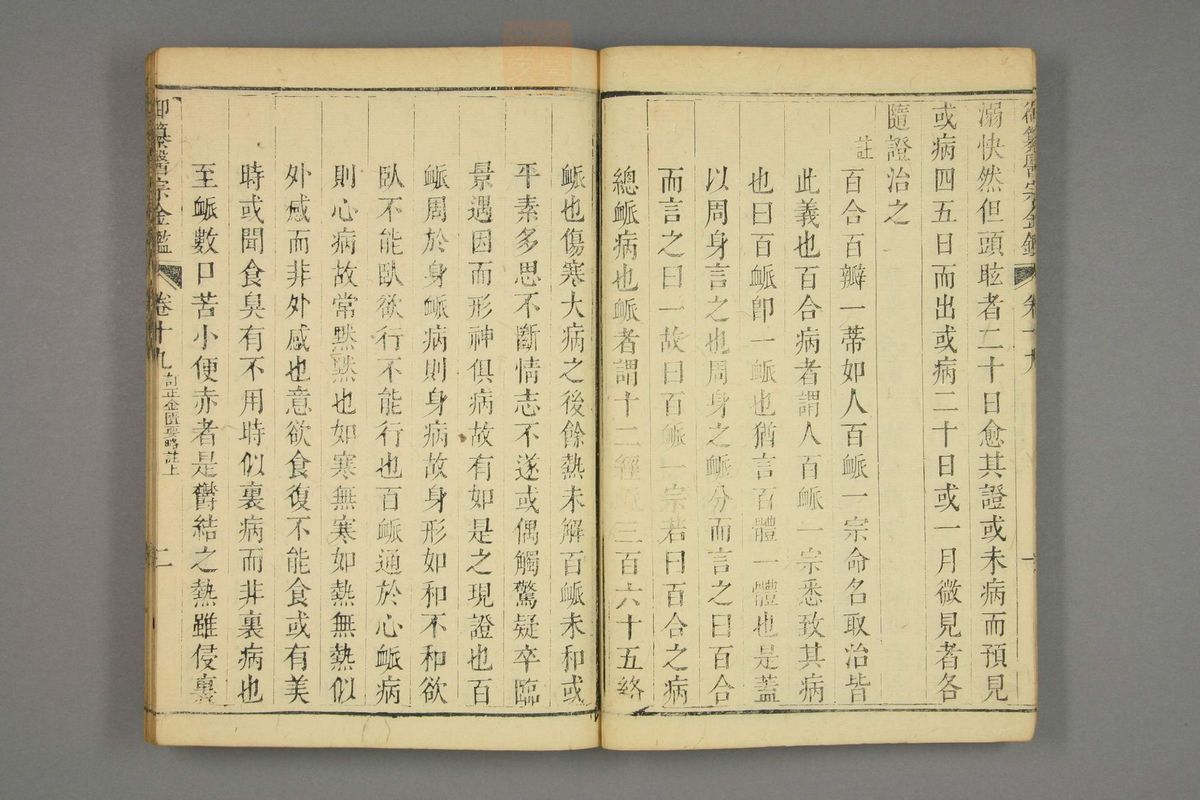 御纂醫宗金鑑
卷十九
一
溺快然但頭眩者二十日愈其證或未病而預見
或病四五日而出或病二十日或一月微見者各
隨證治之
註
百合百瓣一蒂如人百䘑一宗命名取治皆
此義也百合病者謂人百䘑一宗悉致其病
也曰百䘑卽一䘑也猶言百體一體也是蓋
以周身言之也周身之䘑分而言之曰百合
而言之曰一故曰百䘑一宗若曰百合之病
總䘑病也䘑者謂十二經三百六十五絡
䘑也傷寒大病之後餘熱未解百䘑未和或
平素多思不斷情志不遂或偶觸驚疑卒臨
景遇因而形神俱病故有如是之現證也百
䘑周於身䘑病則身病故身形如和不和欲
臥不能臥欲行不能行也百䘑通於心䘑病
則心病故常默默也如寒無寒如熱無熱似
外感而非外感也意欲食復不能食或有美
時或聞食臭有不用時似裏病而非裏病也
至䘑數口苦小便赤者是鬱結之熱雖侵裏
御纂醫宗金鑑
卷十九
訂正金匱要略註上
二